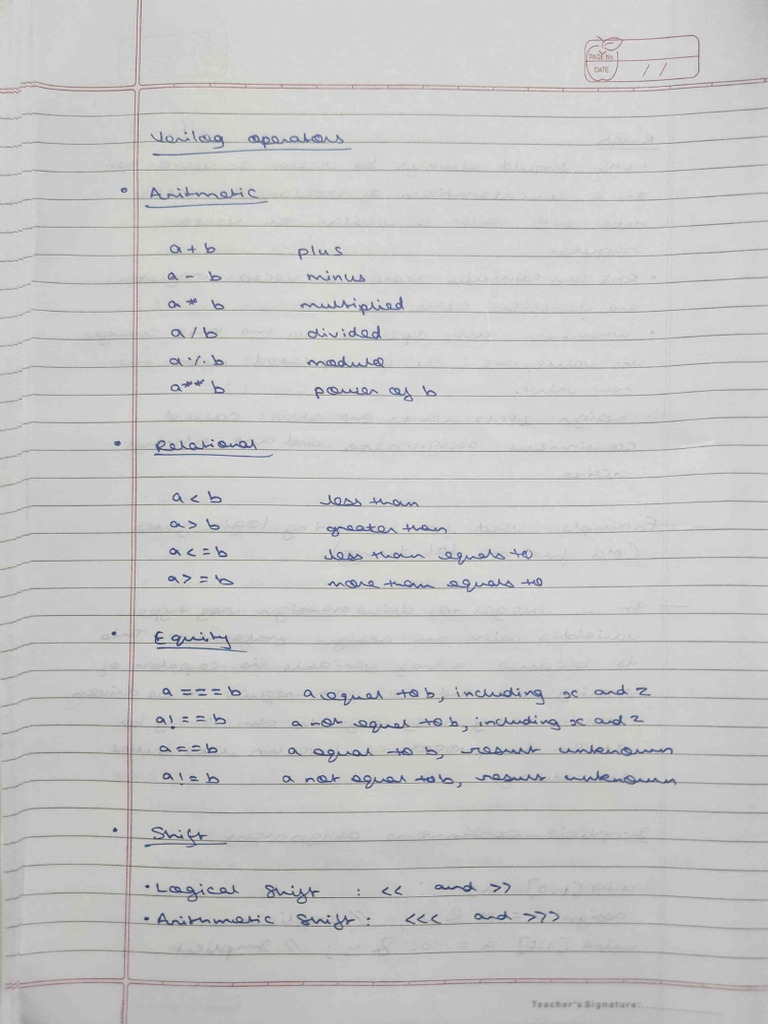 PAGE No.
DATE / /
Verilog operators
• Aritmatic
a + b plus
a - b minus
a * b multiplied
a / b divided
a % b modulo
a ** b power of b
• Relational
a < b less than
a > b greater than
a < = b less than equals to
a > = b more than equals to
• Equity
a = = = b a equal to b, including x and z
a ! = = b a not equal to b, including x and z
a = = b a equal to b, result unknown
a ! = b a not equal to b, result unknown
• Shift
• Logical Shift : << and >>
• Arithmetic Shift : <<< and >>>
Teacher's Signature: